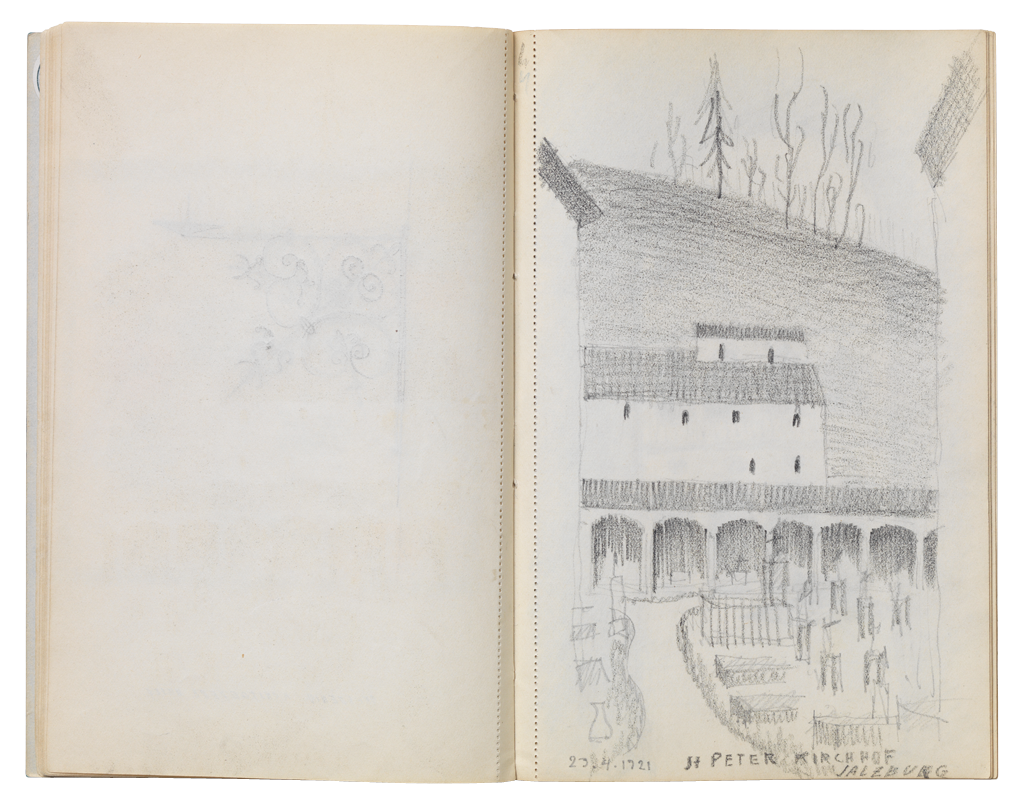 29.4.1921 St PETER KIRCHHOF
SALZBURG